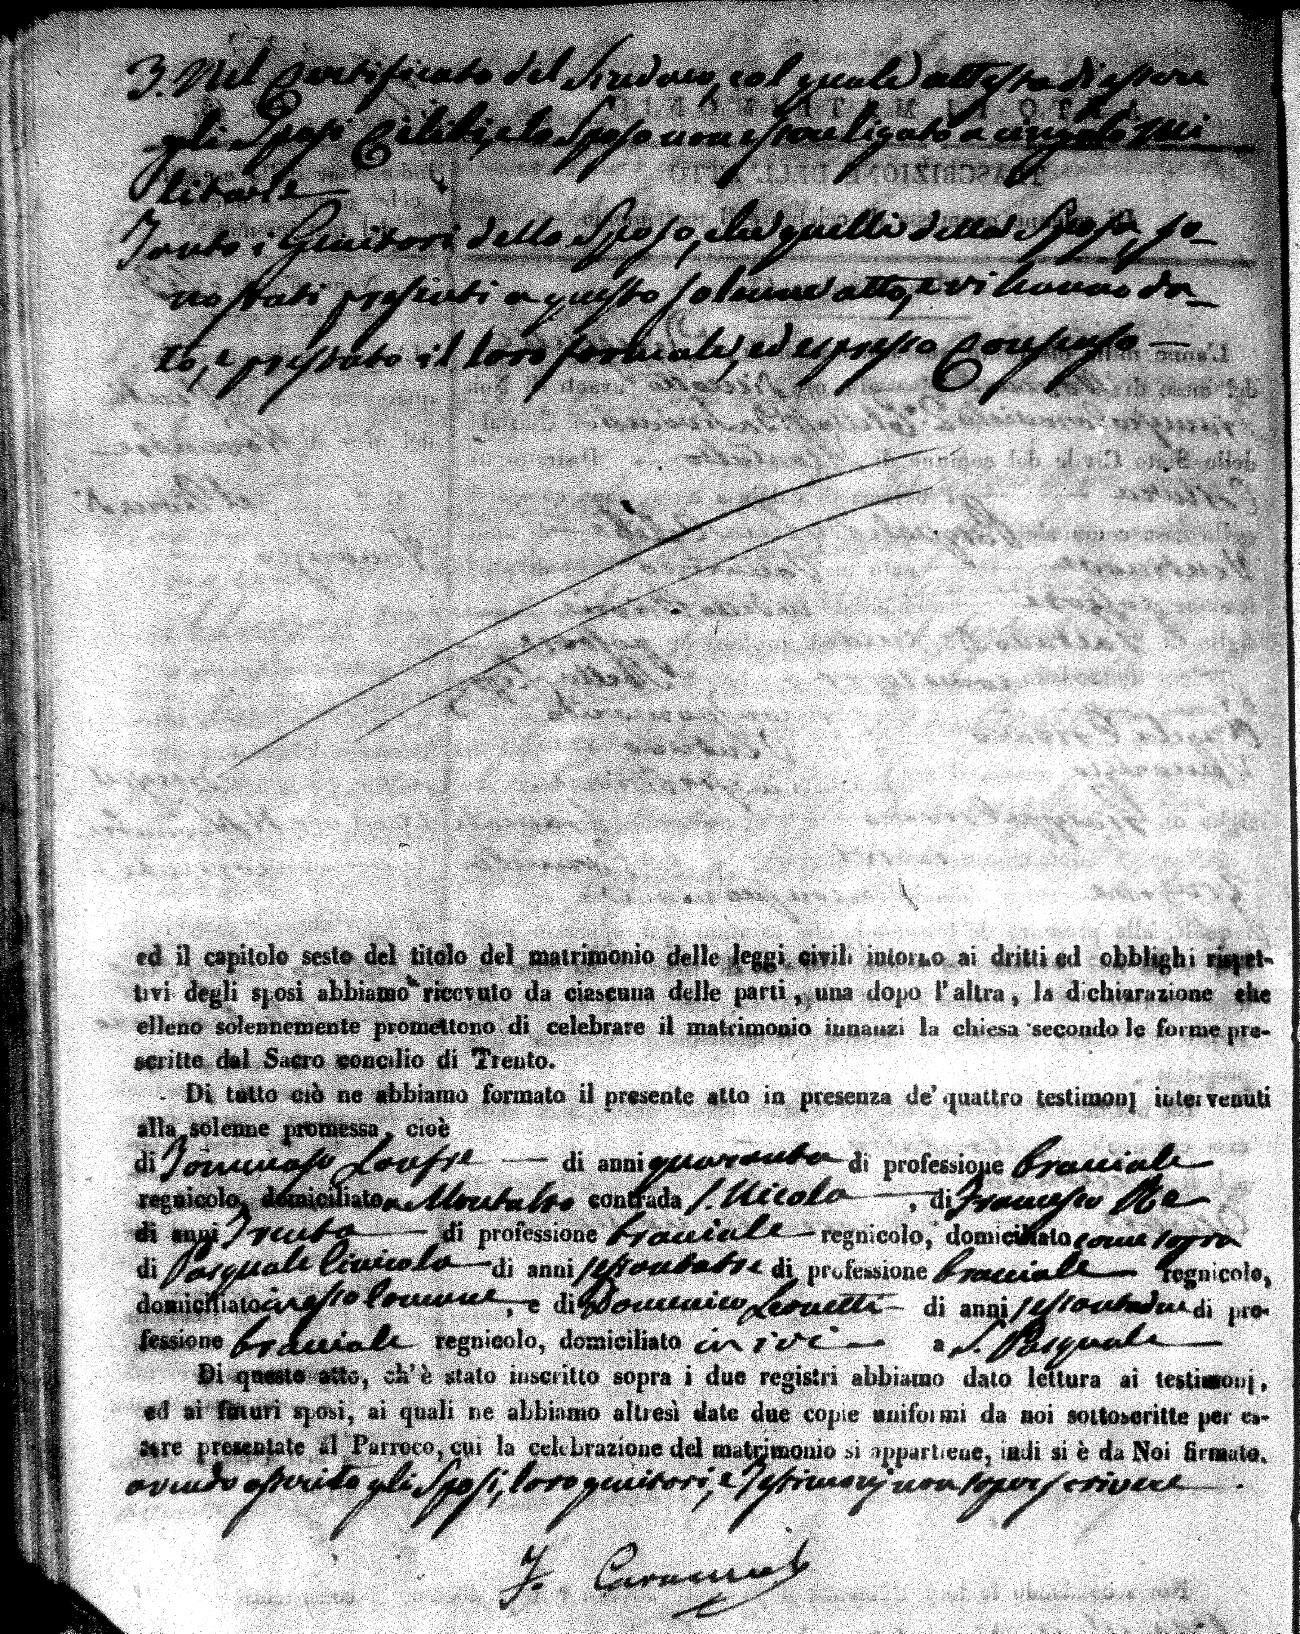 3. Nel Certificato del Sindaco, col quale attesta di essere
gli Sposi Celibi, e lo Sposo non essere ligato a cingolo mi
litare
Tanto i Genitori dello Sposo, che quelli della Sposa, so-
no stati presenti a questo solenne atto, e vi hanno da-
to, e prestato il loro formale, ed espresso Consenso —
ed il capitolo sesto del titolo del matrimonio delle leggi civili intorno ai dritti ed obblighi rispet-
tivi degli sposi abbiamo ricevuto da ciascuna delle parti, una dopo l'altra, la dichiarazione che
elleno solennemente promettono di celebrare il matrimonio innanzi la chiesa secondo le forme pre-
scritte dal Sacro concilio di Trento.
Di tutto ciò ne abbiamo formato il presente atto in presenza de' quattro testimonj intervenuti
alla solenne promessa, cioè
di Tommaso — di anni quaranta di professione bracciale
regnicolo, domiciliato a Montalto contrada S. Nicola —, di Francesco
di anni Trenta — di professione bracciale — regnicolo, domiciliato come sopra
di Pasquale — di anni sessantatre di professione bracciale — regnicolo,
domiciliato in esso Comune, e di Domenico Leonetti — di anni sessantadue di pro-
fessione bracciale regnicolo, domiciliato in ivi — a S. Pasquale —
Di questo atto, ch'è stato inscritto sopra i due registri abbiamo dato lettura ai testimonj,
ed ai futuri sposi, ai quali ne abbiamo altresì date due copie uniformi da noi sottoscritte per es-
sere presentate al Parroco, cui la celebrazione del matrimonio si appartiene, indi si è da Noi firmato.
avendo asserito gli Sposi, loro genitori, e Testimonj non saper scrivere — .